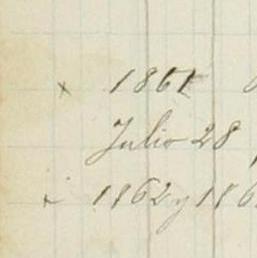 x 1861
Julio 28
x 1862 y 186